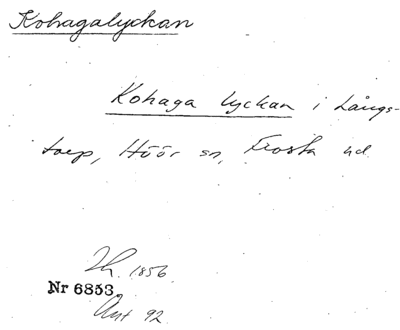 Kohagalyckan
Kohaga lyckan i Långs-
torp, Höör sn, Frosta hd
Lh. 1856
Nr 6853
Ant 92